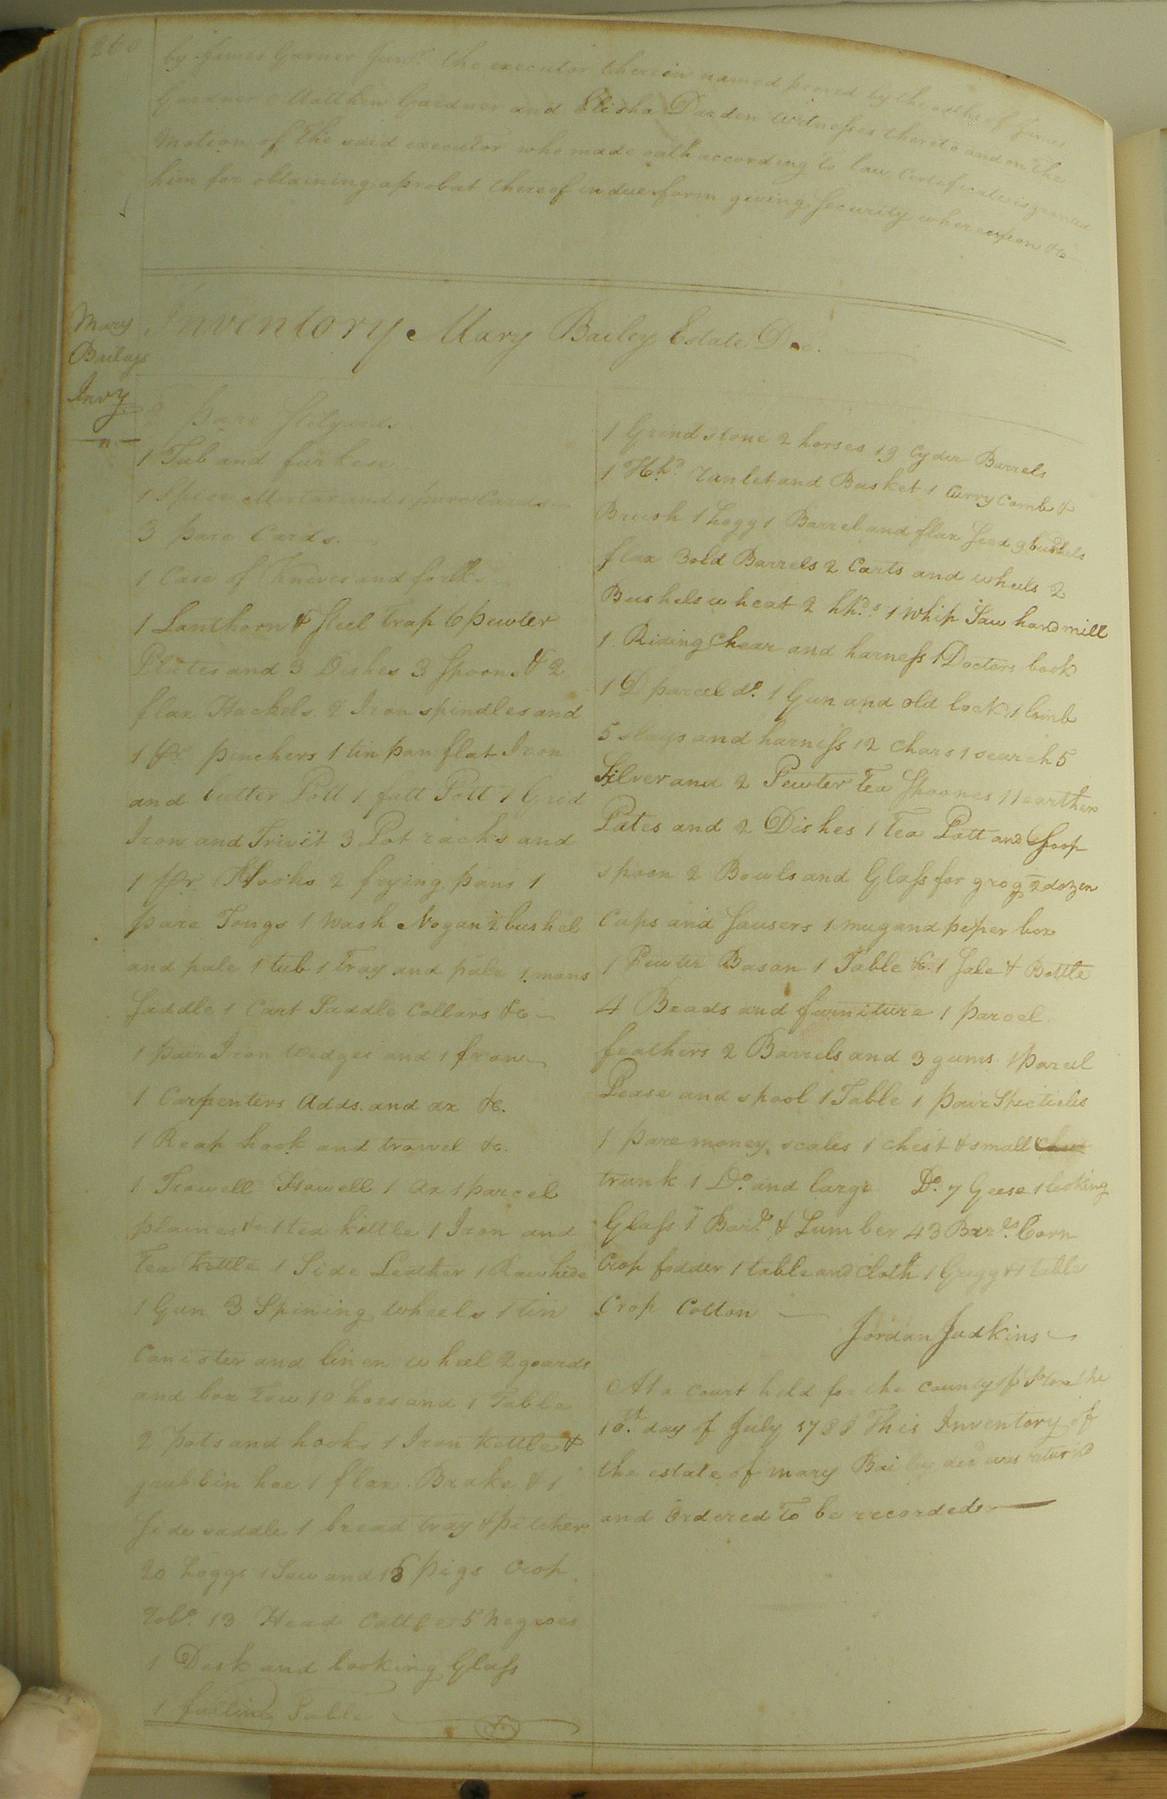 260
by James Garner Junr. the executor therein named proved by the oaths of James
Gardner Matthew Gardner and Elisha Darden witnesses thereto and on the
Motion of the said executor who made oath according to law Certificate is granted
him for obtaining a probat thereof in due form giving security whereupon &c
Mary
Baileys
Invy
Inventory Mary Bailey Estate Dec.
pare Stilyards
1 Tub and furken
1 Spice Mortar and 1 pare Cards
3 pare Cards.
1 Case of Knives and forks
1 Lanthorn & Steel trap 6 pewter
Plates and 3 Dishes 3 Spoons & 2
flax Hackels 2 Iron spindles and
1 pr pinchers 1 tin pan flat Iron
and butter Pott 1 fatt Pott 1 Grid
Iron and Trivit 3 Pot racks and
1 pr. Hooks 2 frying pans 1
pare Tongs 1 wash Nogan 2 bushels
and pale 1 tub 1 Tray and pale 1 mans
Saddle 1 Cart Saddle Collars &c
1 pair Iron wedges and 1 frow
1 Carpenters adds and ax &c.
1 Reap hook and trowel &c.
1 Trowell Howell 1 ax 1 parcel
plaines &c 1 tea kittle 1 Iron and
Tea kettle 1 Side Leather 1 Rawhide
1 Gun 3 Spining wheels 1 tin
Canister and linen wheel 2 goards
and box tow 10 hoes and 1 Table
2 pots and hooks 1 Iron kettle &
grubbin hoe 1 flax Brake & 1
Side saddle 1 bread tray & pitcher
20 hoggs 1 Sow and 16 pigs Crop
Tobo. 13 Head Cattle 5 Negroes
1 Desk and looking Glass
1 falling Table
1 Grind stone 2 horses 19 Cyder Barrels
1 Hhd. runlet and Basket 1 Curry comb &
Brush 1 hogg 1 Barrel and flax seed 9 bushels
flax 3 old Barrels 2 Carts and wheels 2
Bushels wheat 2 hhds 1 whip Saw hand mill
1 Riding Chear and harness 1 Doctors book
1 D parcel do. 1 Gun and old lock 1 Comb
5 slays and harness 12 Chars 1 search 5
Silver and 2 Pewter Tea Spoones 11 earthen
Plates and 2 Dishes 1 Tea Pott and Soop
spoon 2 Bowls and Glass for grog 2 dozen
Cups and Sausers 1 mug and peper box
1 Pewter Bason 1 Table &c. 1 Jale & Bottle
4 Beads and furniture 1 parcel
feathers 2 Barrels and 3 gums 1 parcel
Pease and spool 1 Table 1 pair Specticles
1 pare money scales 1 chest & small
trunk 1 Do. and large Do. 7 Geese 1 looking
Glass 1 Barl. & Lumber 43 Barls. Corn
Crop fodder 1 table and Cloth 1 Gugg & 1 table
Crop Cotton
Jordan Judkins
At a Court held for the County of the
10th. day of July 1788 This Inventory of
the estate of Mary Bailey decd was returnd
and Ordered To be recorded